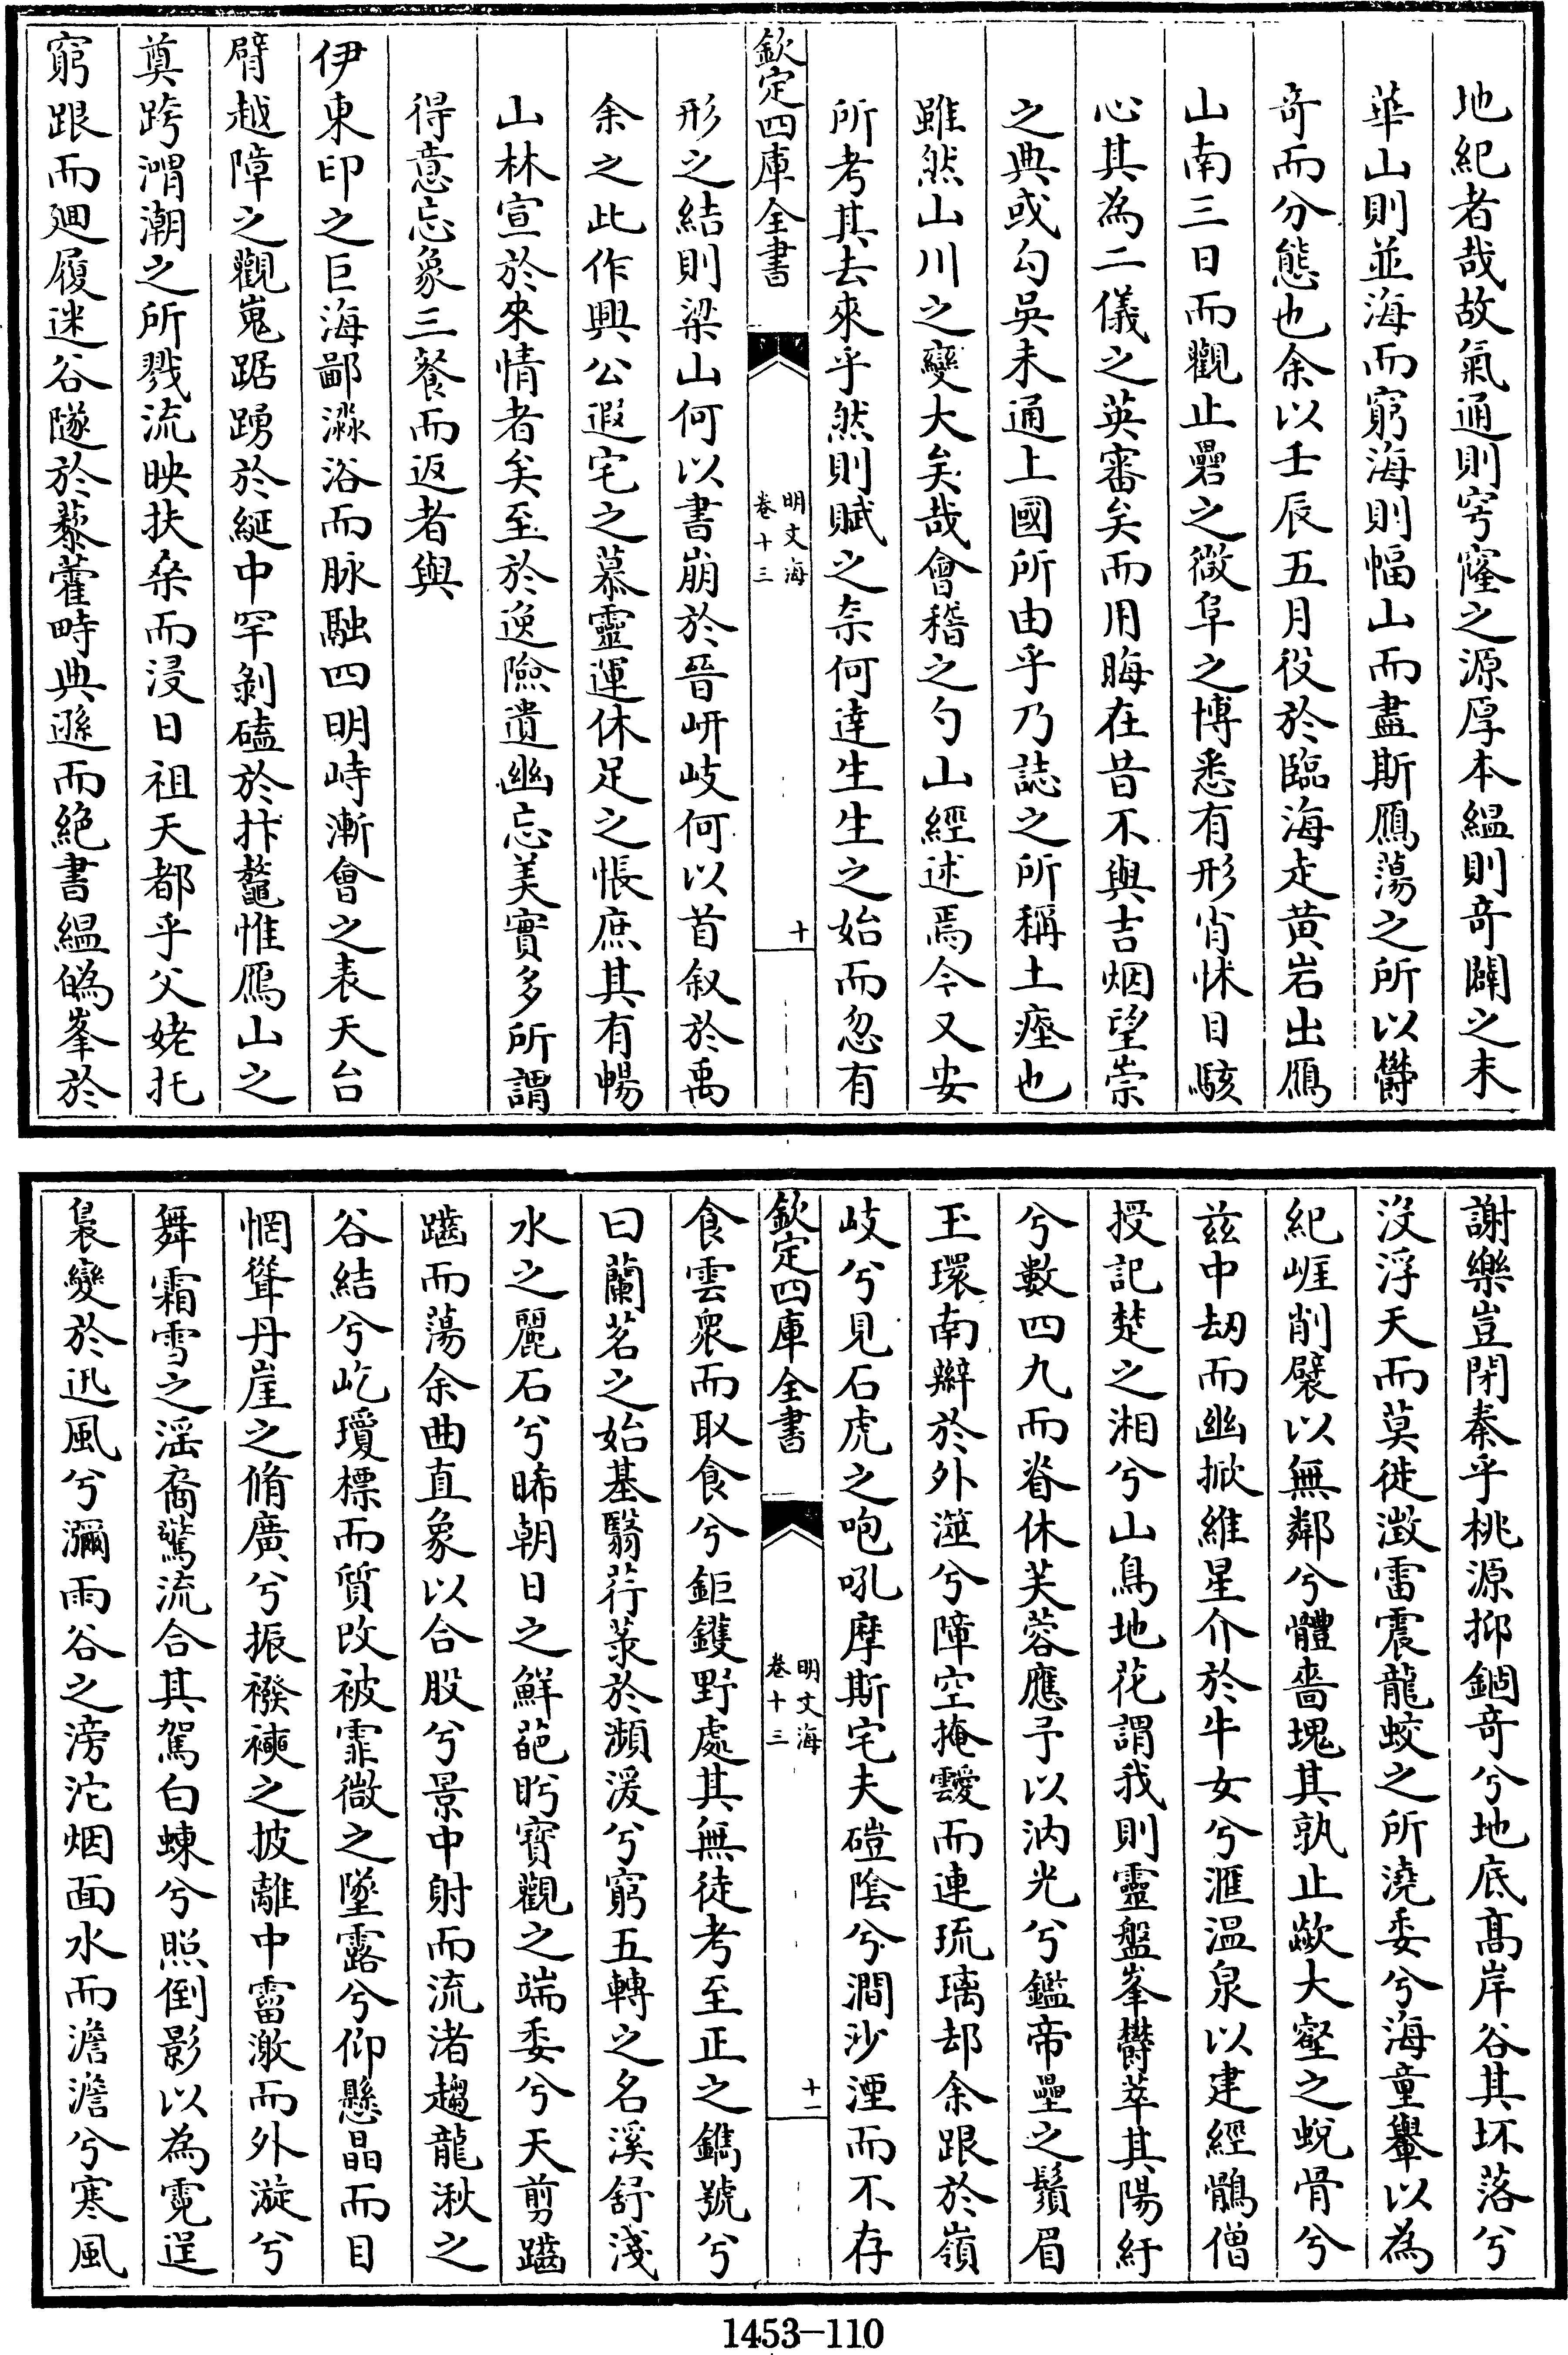 地紀者哉故氣通則穹窿之源厚本緼則奇闢之末
華山則並海而窮海則幅山而盡斯鴈蕩之所以欝
奇而分態也余以壬辰五月役於臨海走黄岩出鴈
山南三日而觀止礨之微阜之博悉有形肖怵目駭
心其為二儀之英審矣而用晦在昔不與吉烟望崇
之典或勾吳未通上國所由乎乃誌之所稱土瘞也
雖然山川之變大矣哉會稽之勺山經述焉今又安
所考其去來乎然則賦之奈何達生生之始而忽有
欽定四庫全書
明文海
卷十三
十
形之結則梁山何以書崩於晉岍岐何以首叙於禹
余之此作興公遐宅之慕靈運休足之悵庶其有暢
山林宣於來情者矣至於逸險遺幽忘美實多所謂
得意忘象三餐而返者與
伊東印之巨海鄙淼浴而脉融四明峙漸會之表天台
臂越障之觀嵬踞踴於綖中罕剝磕於抃鼇惟鴈山之
奠跨淠潮之所戮流映扶桑而浸日祖天都乎父姥托
窮跟而廻履迷谷隧於藜藿畤典遜而絶書緼僞峯於
謝樂豈閉秦乎桃源抑錮奇兮地底髙岸谷其坏落兮
沒浮天而莫徙澂雷震龍蛟之所澆委兮海童轝以為
紀崕削襞以無鄰兮體嗇塊其孰止歘大壑之蛻骨兮
兹中刼而幽掀維星介於牛女兮滙温泉以建經鶻僧
授記楚之湘兮山鳥地花謂我則靈盤峯欝萃其陽紆
兮數四九而眷休芙蓉應予以汭光兮鑑帝壘之鬚眉
玉環南辮於外滋兮障空掩靉而連琉璃却余跟於嶺
岐兮見石虎之咆吼摩斯宅夫磑陰兮澗沙湮而不存
欽定四庫全書
明文海
卷十三
十一
食雲衆而取食兮鉅鑊野處其無徒考至正之鐫號兮
曰蘭茗之始基翳荇菉於瀕湲兮窮五轉之名溪舒淺
水之麗石兮晞朝日之鮮葩盻寳觀之端委兮天剪躤
躤而蕩余曲直象以合股兮景中射而流渚趨龍湫之
谷結兮屹瓊標而質改被霏微之墜露兮仰懸晶而目
惘聳丹崖之脩廣兮振襏襫之披離中霤潄而外漩兮
舞霜雪之滛裔驚流合其駕白蝀兮照倒影以為霓逞
裊變於迅風兮瀰雨谷之滂沱烟面水而澹澹兮寒風
1453—110